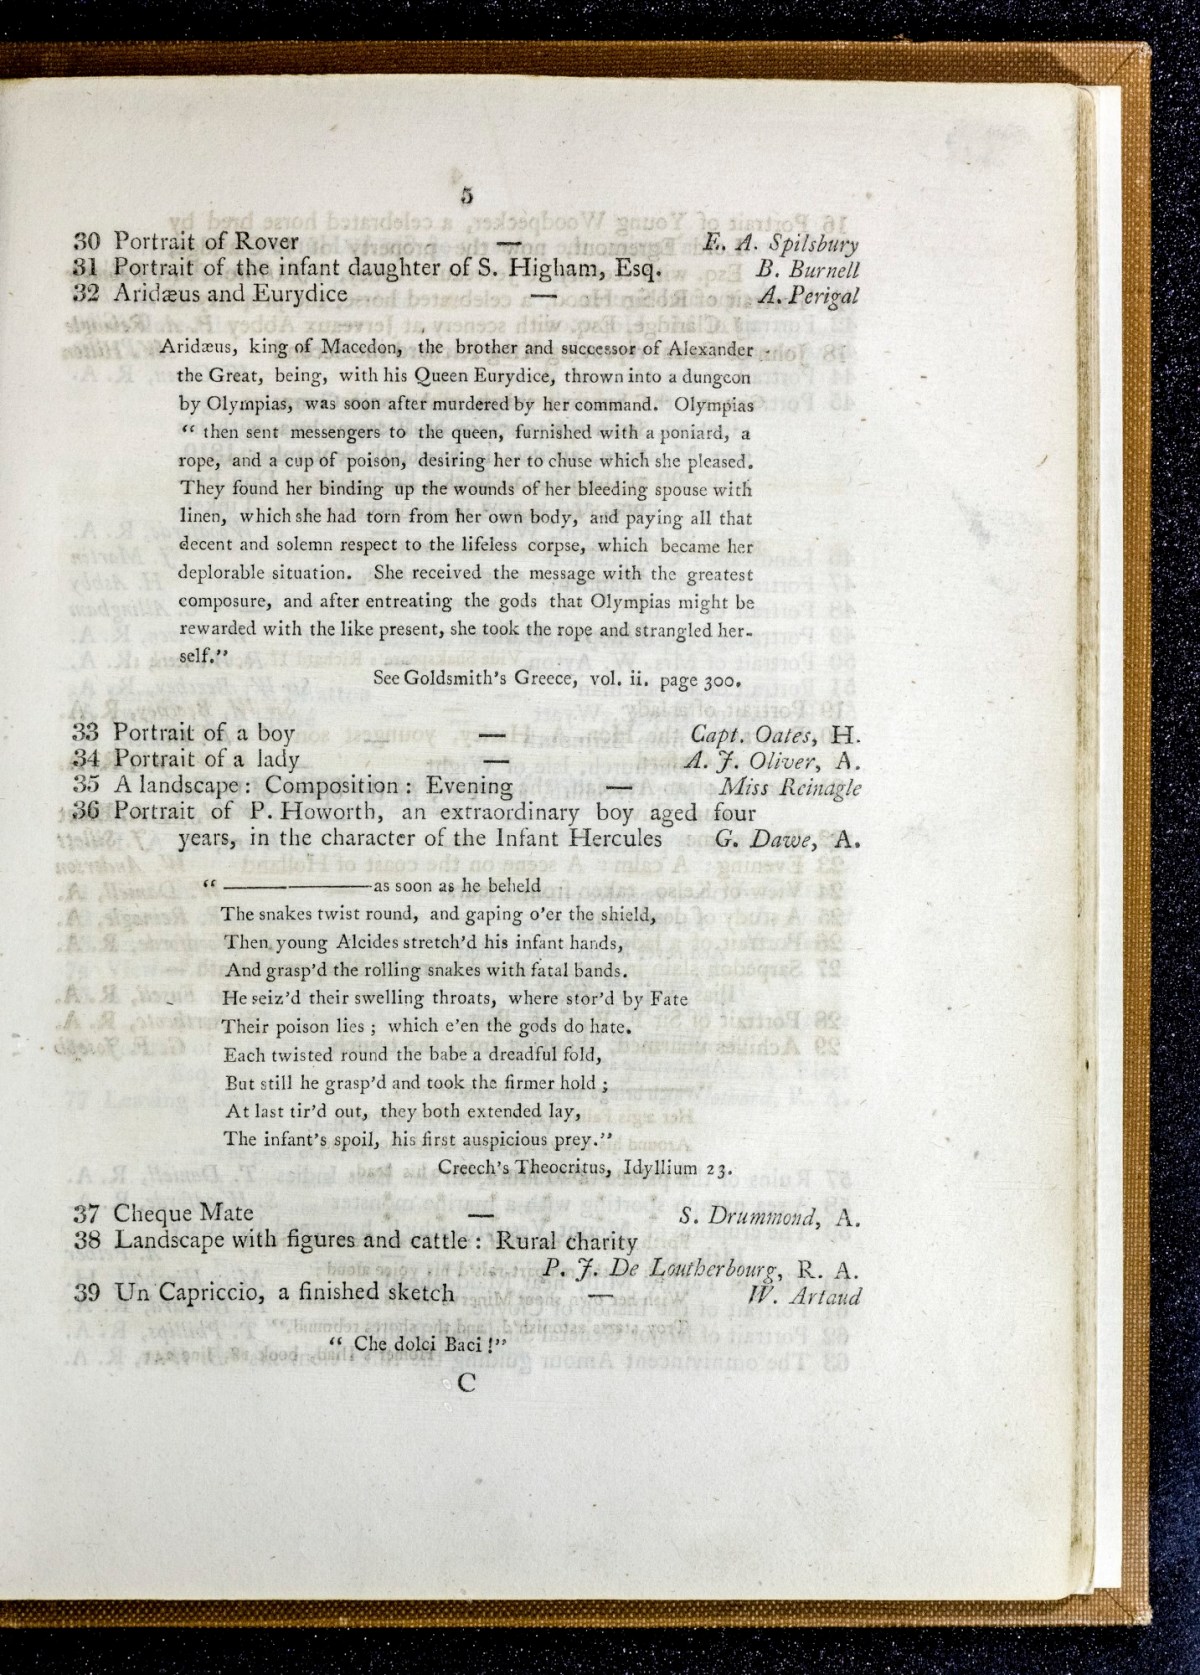 5
30 Portrait of Rover — E. A. Spilsbury
31 Portrait of the infant daughter of S. Higham, Esq. B. Burnell
32 Aridæus and Eurydice — A. Perigal
Aridæus, king of Macedon, the brother and successor of Alexander
the Great, being, with his Queen Eurydice, thrown into a dungeon
by Olympias, was soon after murdered by her command. Olympias
“ then sent messengers to the queen, furnished with a poniard, a
rope, and a cup of poison, desiring her to chuse which she pleased.
They found her binding up the wounds of her bleeding spouse with
linen, which she had torn from her own body, and paying all that
decent and solemn respect to the lifeless corpse, which became her
deplorable situation. She received the message with the greatest
composure, and after entreating the gods that Olympias might be
rewarded with the like present, she took the rope and strangled her-
self.”
See Goldsmith's Greece, vol. ii. page 300.
33 Portrait of a boy — Capt. Oates, H.
34 Portrait of a lady — A. J. Oliver, A.
35 A landscape : Composition : Evening — Miss Reinagle
36 Portrait of P. Howorth, an extraordinary boy aged four
years, in the character of the Infant Hercules G. Dawe, A.
“ ———————— as soon as he beheld
The snakes twist round, and gaping o'er the shield,
Then young Alcides stretch'd his infant hands,
And grasp'd the rolling snakes with fatal bands.
He seiz'd their swelling throats, where stor'd by Fate
Their poison lies ; which e'en the gods do hate.
Each twisted round the babe a dreadful fold,
But still he grasp'd and took the firmer hold ;
At last tir'd out, they both extended lay,
The infant's spoil, his first auspicious prey.”
Creech's Theocritus, Idyllium 23.
37 Cheque Mate — S. Drummond, A.
38 Landscape with figures and cattle : Rural charity
P. J. De Loutherbourg, R. A.
39 Un Capriccio, a finished sketch — W. Artaud
“ Che dolci Baci !”
C